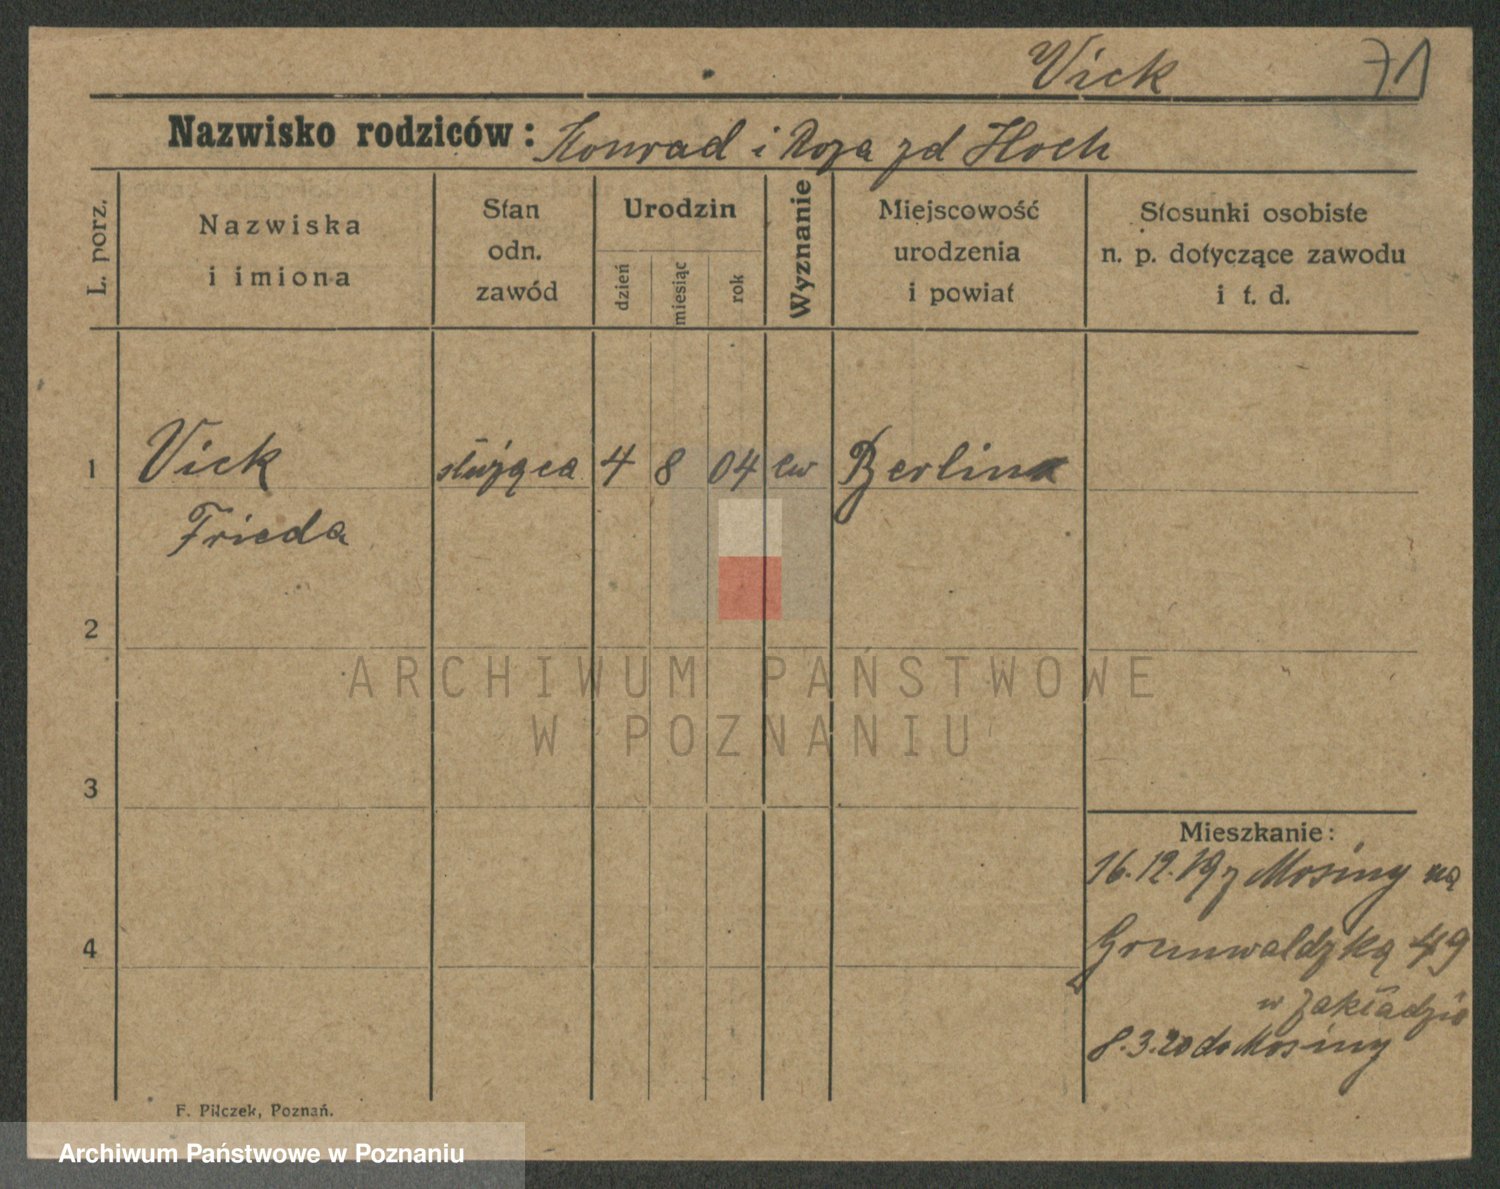 Vick 71
Nazwisko rodziców: Konrad i Roza zd Hoch
L. porz.
Nazwiska
i imiona
Stan
odn.
zawód
Urodzin
dzień
miesiąc
rok
Wyznanie
Miejscowość
urodzenia
i powiat
Stosunki osobiste
n. p. dotyczące zawodu
i t. d.
1 Vick służąca 4 8 04 ew Berlin
Frieda
2
ARCHIWUM PAŃSTWOWE
W POZNANIU
3
Mieszkanie:
16.12.19 z Mosiny na
4
Grunwaldzką 49
w zakładzie
8.3.20 do Mosiny
F. Pilczek, Poznań.
Archiwum Państwowe w Poznaniu